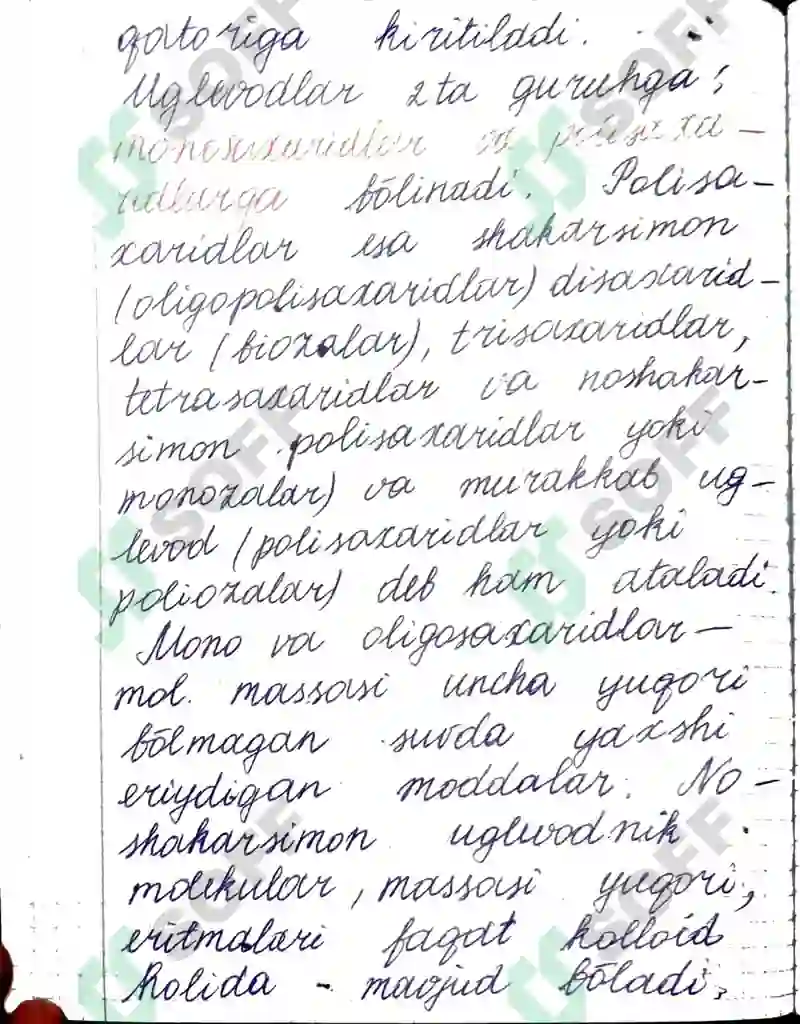 qatoriga kiritiladi.
Uglevodlar 2 ta guruhga;
monosaxaridlar va polisaxa-
ridlarga bōlinadi. Polisa-
xaridlar esa shakarsimon
(oligopolisaxaridlar) disaxarid-
lar (biozalar), trisaxaridlar,
tetrasaxaridlar va noshakar-
simon polisaxaridlar yoki
monozalar) va murakkab ug-
levod (polisaxaridlar yoki
poliozalar) deb ham ataladi.
Mono va oligosaxaridlar -
mol. massasi uncha yuqori
bōlmagan suvda yaxshi
eriydigan moddalar. No-
shakarsimon uglevodnik
molekular, massasi yuqori,
eritmalari faqat kolloid
holida - mavjud bōladi,
SOFF
SOFF
SOFF
SOFF
SOFF
SOFF